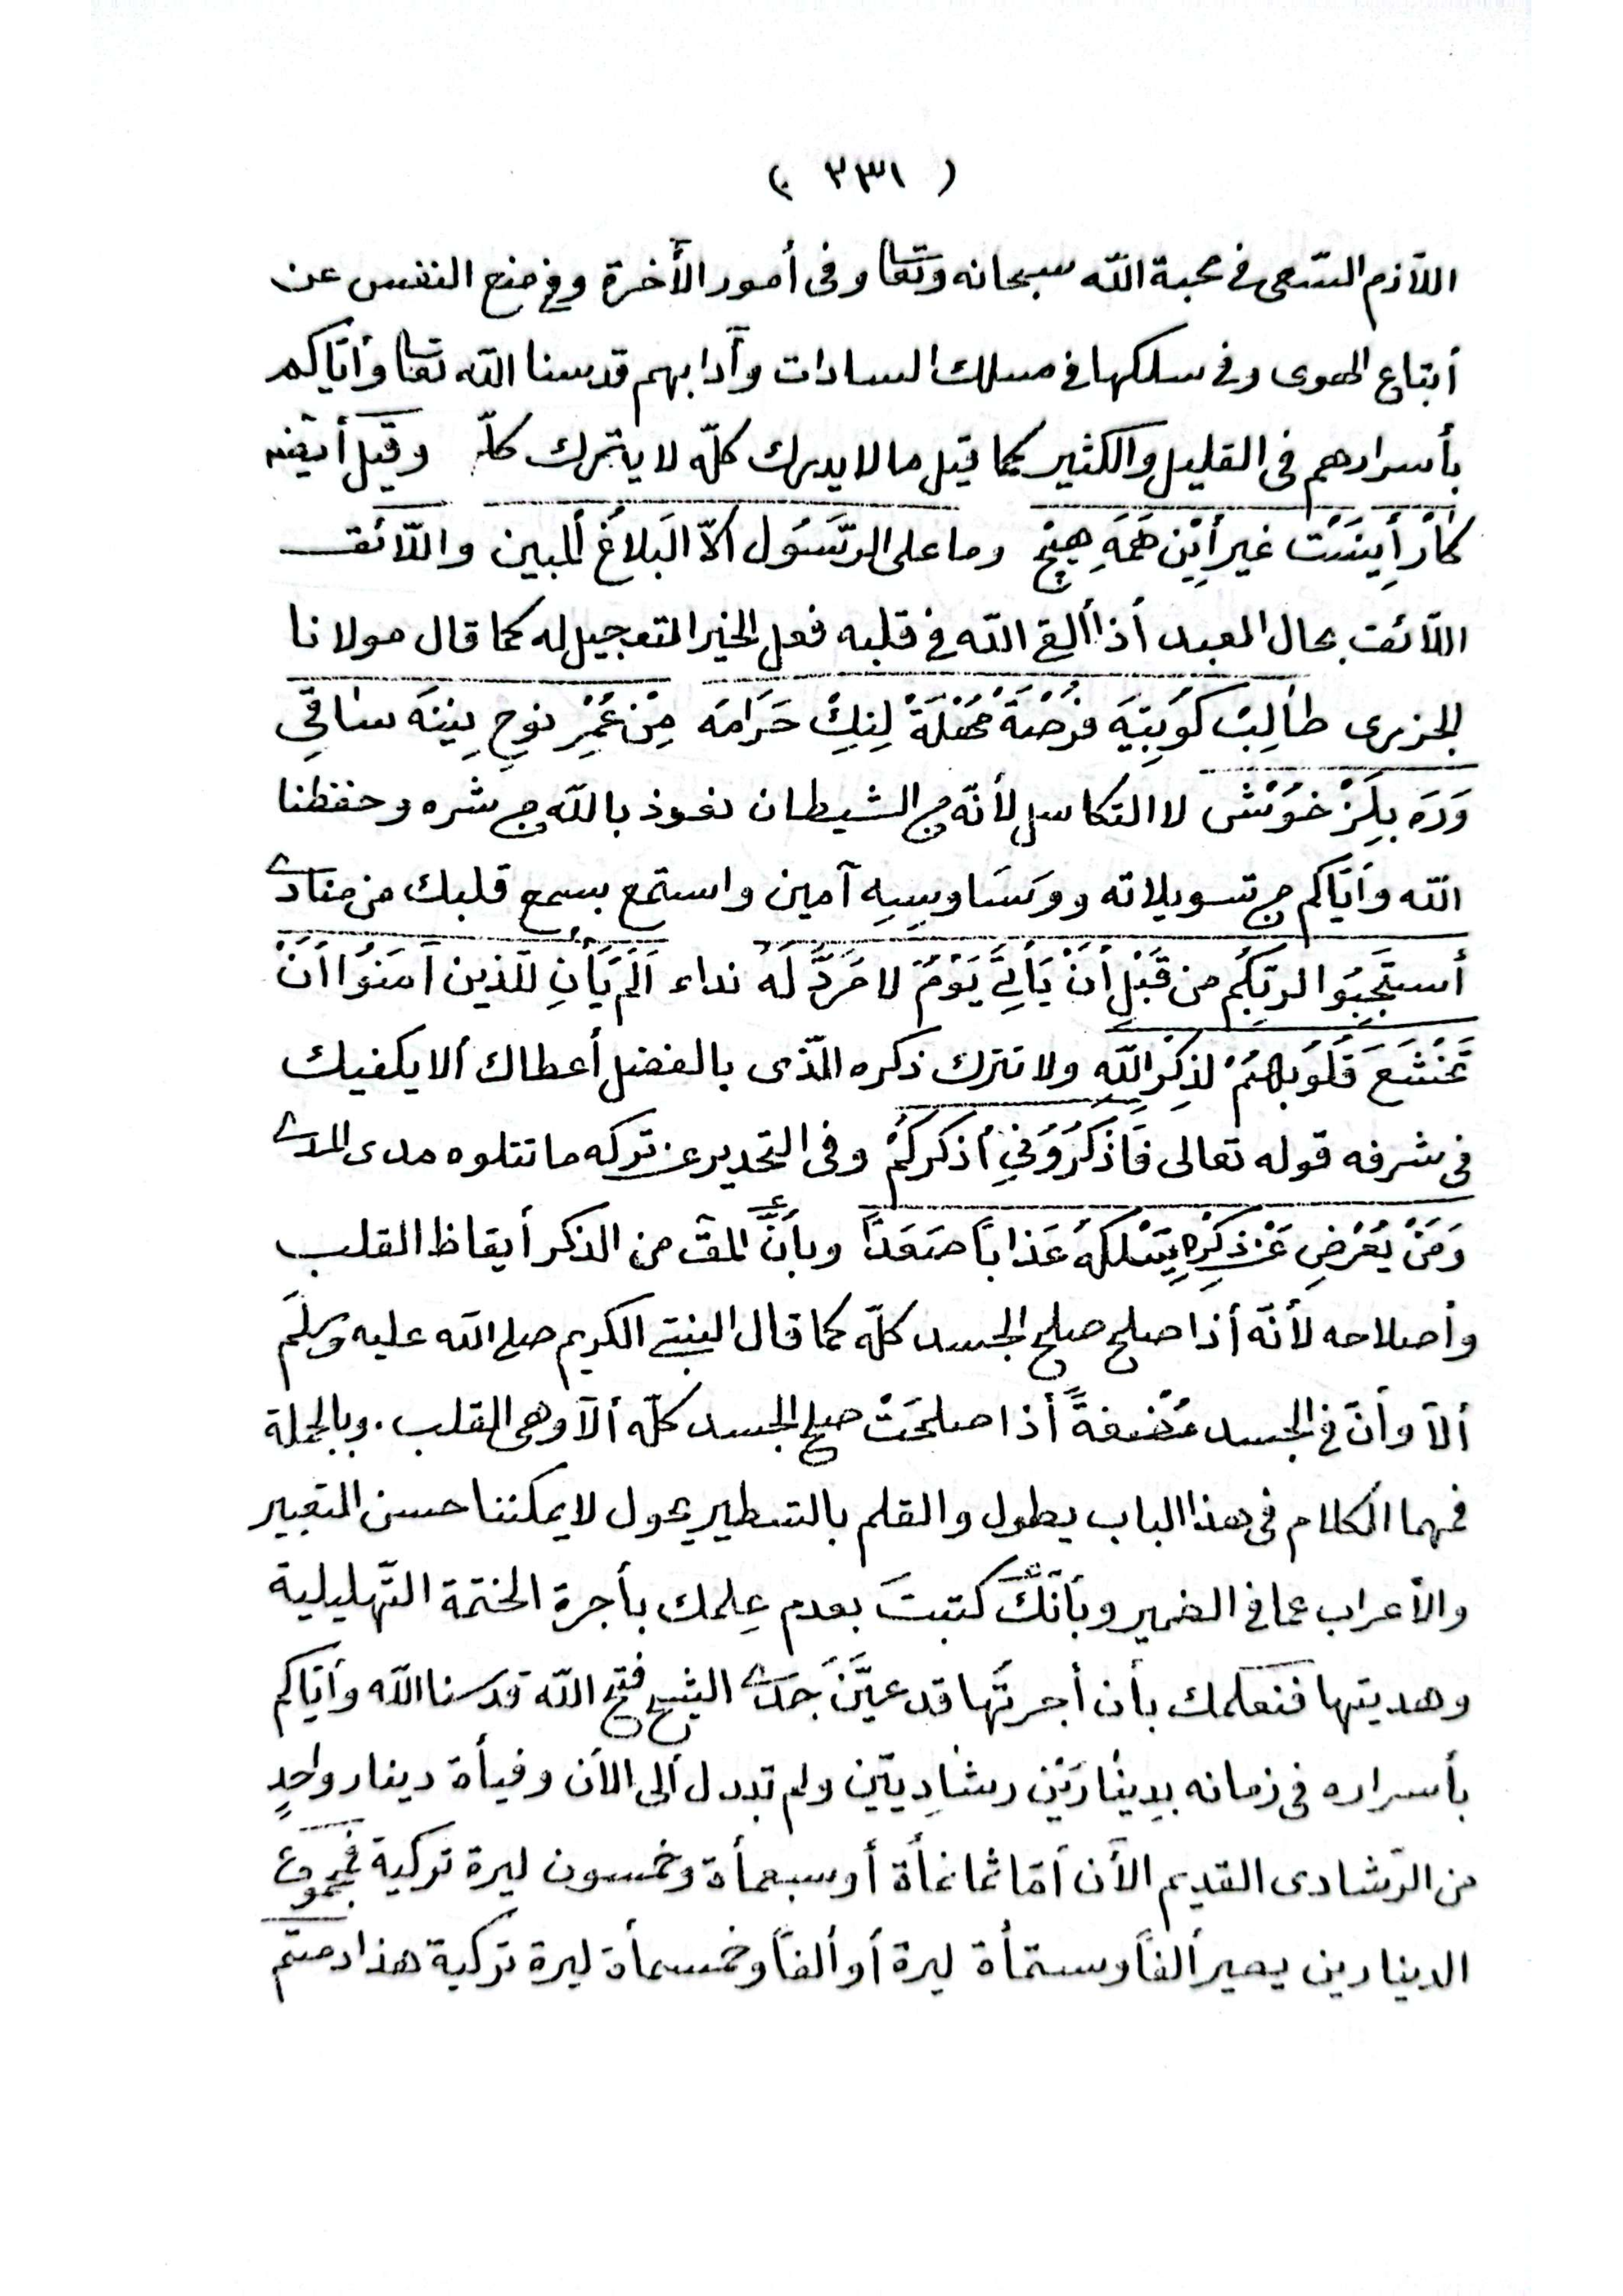 ( ٣٣١ )
اللّازم السّعى فى محبة اللّه سبحانه وتعا وفى أمور الأخرة وفى منع النفس عن
أتباع الهوى وفى سلكها فى مسلك السادات وأدابهم قدسنا اللّه تعا وأيّاكم
بأسرارهم فى القليل والكثير كما قيل ما لا يدرك كلّه لا يترك كلّه وقيل أيضه
كَارْ أينَسْت غير أيْن هَمَهِ هِيْچ وما على الرَّسَوُل الاّ البَلاغُ المبين واللّائق
اللّائق بحال العبد أذا ألقى اللّه فى قلبه فعل الخير التعجيل له كما قال مولانا
الجزرى طالِبْ كوُبِتِيَه فرُصْتَه مُهْلَةْ لِنِكْ حَرَامَه مِنْ عُمْرِ نوحِ نِينَه ساقي
وَرَه بِلَزْ خوُشْ لا التكاسل لأنّه من الشيطان نعوذ باللّه من شره وحفظنا
اللّه وأيّاكم من تسويلاته ووَسَاوِسِهِ آمين واستمع بسمع قلبك من منادى
أستَجِيبُوا لربّكُم من قَبْلِ أَنْ يَأتِىَ يَوْمٌ لا مَرَدَّ لَهُ نداء اَلَمْ يَأنِ للّذين اَمَنوُا اَنْ
تَخْشَعَ قُلُوبُهُمْ لذِكْرِ اللّهِ ولا تترك ذكره الّذى بالفضل أعطاك ألا يكفيك
فى شرفه قوله تعالى فَاذْكُرُونِي أذكركُمْ وفى التحذير عن تركه ما تتلوه مدى المدى
وَمَنْ يُعْرِضِ عَنْ ذِكْرِهِ يَسْلكهُ عَذاباً صَعَداً وبأنَّ المق من الذكر أيقاظ القلب
وأصلاحه لأنّه أذا صلح صلح الجسد كلّه كما قال النبىّ الكريم صلى اللّه عليه وسلّم
ألاَ وأنّ فى الجسد مُضْغةً أذا صلحَتْ صلح الجسد كلّه ألاَ وهى القلب . وبالجملة
فمهما الكلام فى هذا الباب يطول والقلم بالتسطير يحول لا يمكننا حسن التعبير
والأعراب عما فى الضمير وبأنّكَ كتبتَ بعدم عِلمك بأجرة الختمة التّهليلية
وهديتها فنعلمك بأن أجرتَها قد عيَّنَ جدّى الشيخ فتح اللّه قدسنا اللّه وأيّاكم
بأسراره فى زمانه بدِينارَيْن رشادِييّن ولم تبدل ألى الأن وفيأة دينار واحدٍ
من الرّشادى القديم الأن اَمّا ثمانمأة أو سبعمأة وخمسون ليرة تركية فمجموع
الدينارين يصير ألفاً وستمأة ليرة أو ألفاً وخمسمأة ليرة تركية هذا دمتم